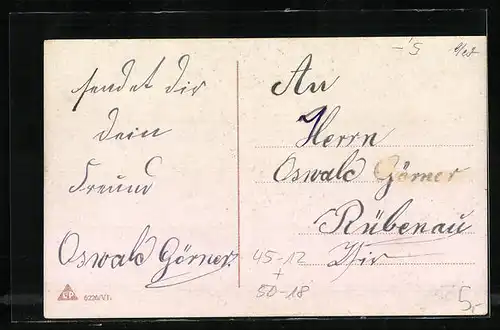 sendet dir
dein
Freund
Oswald Görner.
An
Herrn
Oswald Görner
Rübenau
Hier
45-12
+
50-18
5,-
-'5
S.P.
6226/VI.